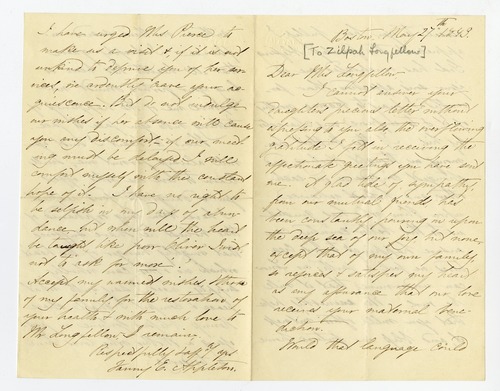 Boston, May 27th 1843.
[To: Zilpah Longfellow]
Dear Mrs Longfellow
I cannot answer your
daughter's precious letter without
expressing to you also, the overflowing
gratitude I felt in receiving the
affectionate greeting you have sent
me. A glad tide of sympathy,
from our mutual friends has
been constantly pouring in upon
the deep sea of our joy, but none,
except that of my own family
so rejoices & satisfies my heart
as my assurance that our love
receives your maternal bene-
diction.
Would that language could
I have urged Mrs Pierce to
make us a visit & if it is not
unkind to deprive you of her ser-
vices, we ardently have your ac-
quiescence. But do not indulge
our wishes if her absence will cause
you any discomfort – if our meet-
ing must be delayed I will
comfort myself with the constant
hope of it. I have no right to
be selfish in my days of abun-
dance, but when will the heart
be taught like poor Oliver Twist
not to "ask for more".
Accept my warmest wishes & those
of my family for the restoration of
your health & with much love to
Mr Longfellow I remain
Respectfully & affly yrs
Fanny E. Appleton.